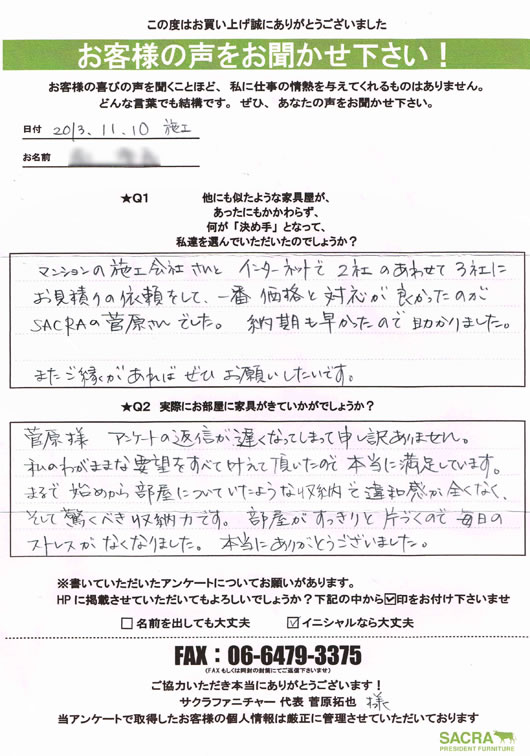 この度はお買い上げ誠にありがとうございました
お客様の声をお聞かせ下さい！
お客様の喜びの声を聞くことほど、私に仕事の情熱を与えてくれるものはありません。
どんな言葉でも結構です。ぜひ、あなたの声をお聞かせ下さい。
日付 2013.11.10 施工
お名前
★Q1 他にも似たような家具屋が、
あったにもかかわらず、
何が「決め手」となって、
私達を選んでいただいたのでしょうか？
マンションの施工会社さんと インターネットで 2社の あわせて 3社に
お見積りの依頼をして、一番 価格と対応が 良かったのが
SACRAの菅原さんでした。 納期も早かったので 助かりました。
またご縁があれば ぜひ お願いしたいです。
★Q2 実際にお部屋に家具がきていかがでしょうか？
菅原様 アンケートの返信が遅くなってしまって申し訳ありません。
私のわがままな要望をすべて叶えて頂いたので 本当に満足しています。
まるで 始めから部屋についていたような収納で違和感が全くなく、
そして驚くべき収納力です。 部屋がすっきりと片づくので毎日の
ストレスがなくなりました。 本当にありがとうございました。
※書いていただいたアンケートについてお願いがあります。
HPに掲載させていただいてもよろしいでしょうか？下記の中から☑印をお付け下さいませ
□ 名前を出しても大丈夫 ☑ イニシャルなら大丈夫
FAX：06-6479-3375
(FAXもしくは同封の封筒にてご返信下さいませ)
ご協力いただき本当にありがとうございます！
サクラファニチャー 代表 菅原拓也 様
当アンケートで取得したお客様の個人情報は厳正に管理させていただいております
SACRA
PRESIDENT FURNITURE